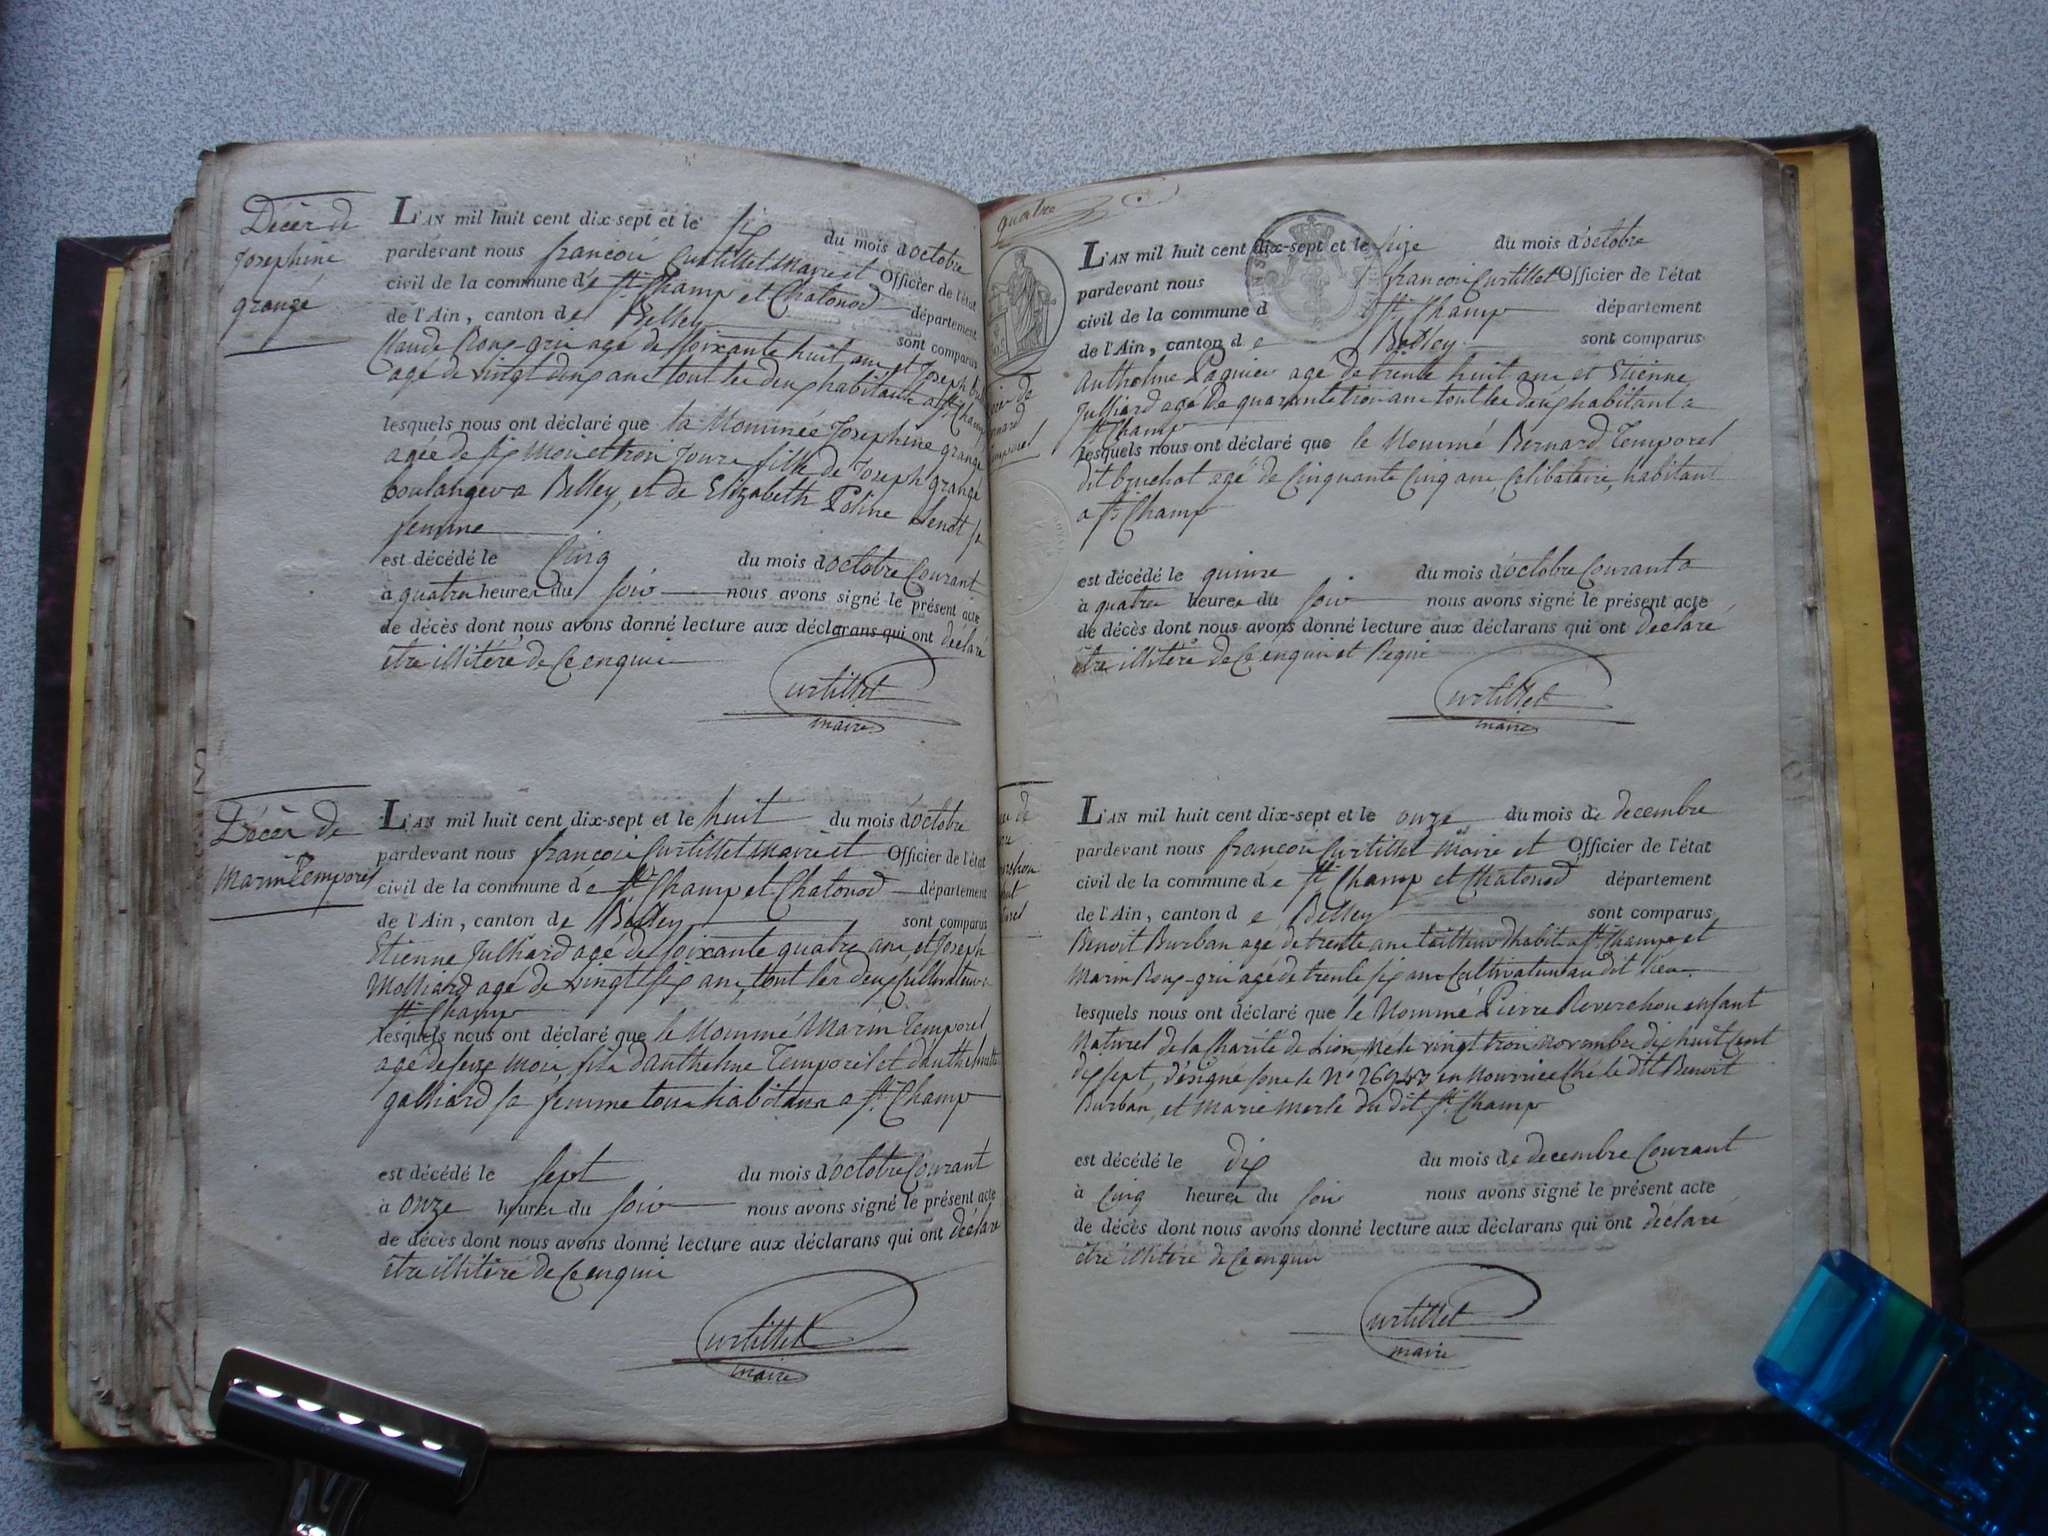 Décèr de
Josephine
grangé
L'AN mil huit cent dix-sept et le six du mois d'octobre
pardevant nous francois Curtillet maire et Officier de l'état
civil de la commune de St. Champ et Chatonod département
de l'Ain, canton de Belley sont comparus
Claude Roux gris agé de soixante huit ans, et Joseph
agé de vingt deux ans tout les deux habitants a St. Champ
lesquels nous ont déclaré que la Nommée Josephine grangé
agée de six mois et trois Jours fille de Joseph grangé
boulanger a Belley, et de Elizabeth Poline sa
femme
est décédé le Cinq du mois d'octobre Courant
à quatre heurer du soir nous avons signé le présent acte
de décès dont nous avons donné lecture aux déclarans qui ont déclaré
être illitéré de Ce enquis
Curtillet
maire
Décèr de
Marin Temporel
L'AN mil huit cent dix-sept et le huit du mois d'octobre
pardevant nous francois Curtillet maire et Officier de l'état
civil de la commune de St. Champ et Chatonod département
de l'Ain, canton de Belley sont comparus
Etienne Julliard agé de soixante quatre ans, et Joseph
Molliard agé de vingt six ans, tout les deux Cultivateurs
St. Champ
lesquels nous ont déclaré que le Nommé Marin Temporel
agé de seize mois, fils d'anthelme Temporel et d'anthelmette
galliard sa femme tous habitans a St. Champ
est décédé le sept du mois d'octobre Courant
à onze heurer du soir nous avons signé le présent acte
de décès dont nous avons donné lecture aux déclarans qui ont déclaré
être illitéré de Ce enquis
Curtillet
maire
quatre
L'AN mil huit cent dix-sept et le seize du mois d'octobre
pardevant nous francois Curtillet Officier de l'état
civil de la commune d St. Champ département
de l'Ain, canton de Belley sont comparus
Anthelme Pagnier agé de trente huit ans et Etienne
Julliard agé de quarante trois ans tout les deux habitant a
St. Champ
lesquels nous ont déclaré que le Nommé Bernard Temporel
dit bruchat agé de Cinquante Cinq ans, Celibataire, habitant
a St. Champ
est décédé le quinze du mois d'octobre Courant a
à quatre heurer du soir nous avons signé le présent acte
de décès dont nous avons donné lecture aux déclarans qui ont déclaré
être illitéré de Ce enquis et Requi
Curtillet
maire
L'AN mil huit cent dix-sept et le onze du mois de decembre
pardevant nous francois Curtillet Maire et Officier de l'état
civil de la commune de St. Champ et Chatonod département
de l'Ain, canton de Belley sont comparus
Benoit Burban agé de trente ans tailleur d'habit a St. Champ et
Marin Roux-gris agé de trente six ans Cultivateur au dit lieu
lesquels nous ont déclaré que le Nommé Pierre Reverchon enfant
Naturel de la Charité de Lion Né le vingt trois novembre dix huit Cent
dix sept, désigné sous le No en Nourrice Ché le dit Benoit
Burban, et Marie Merle du dit St. Champ
est décédé le dix du mois de decembre Courant
à Cinq heurer du soir nous avons signé le présent acte
de décès dont nous avons donné lecture aux déclarans qui ont déclaré
être illitéré de Ce enquis
Curtillet
maire